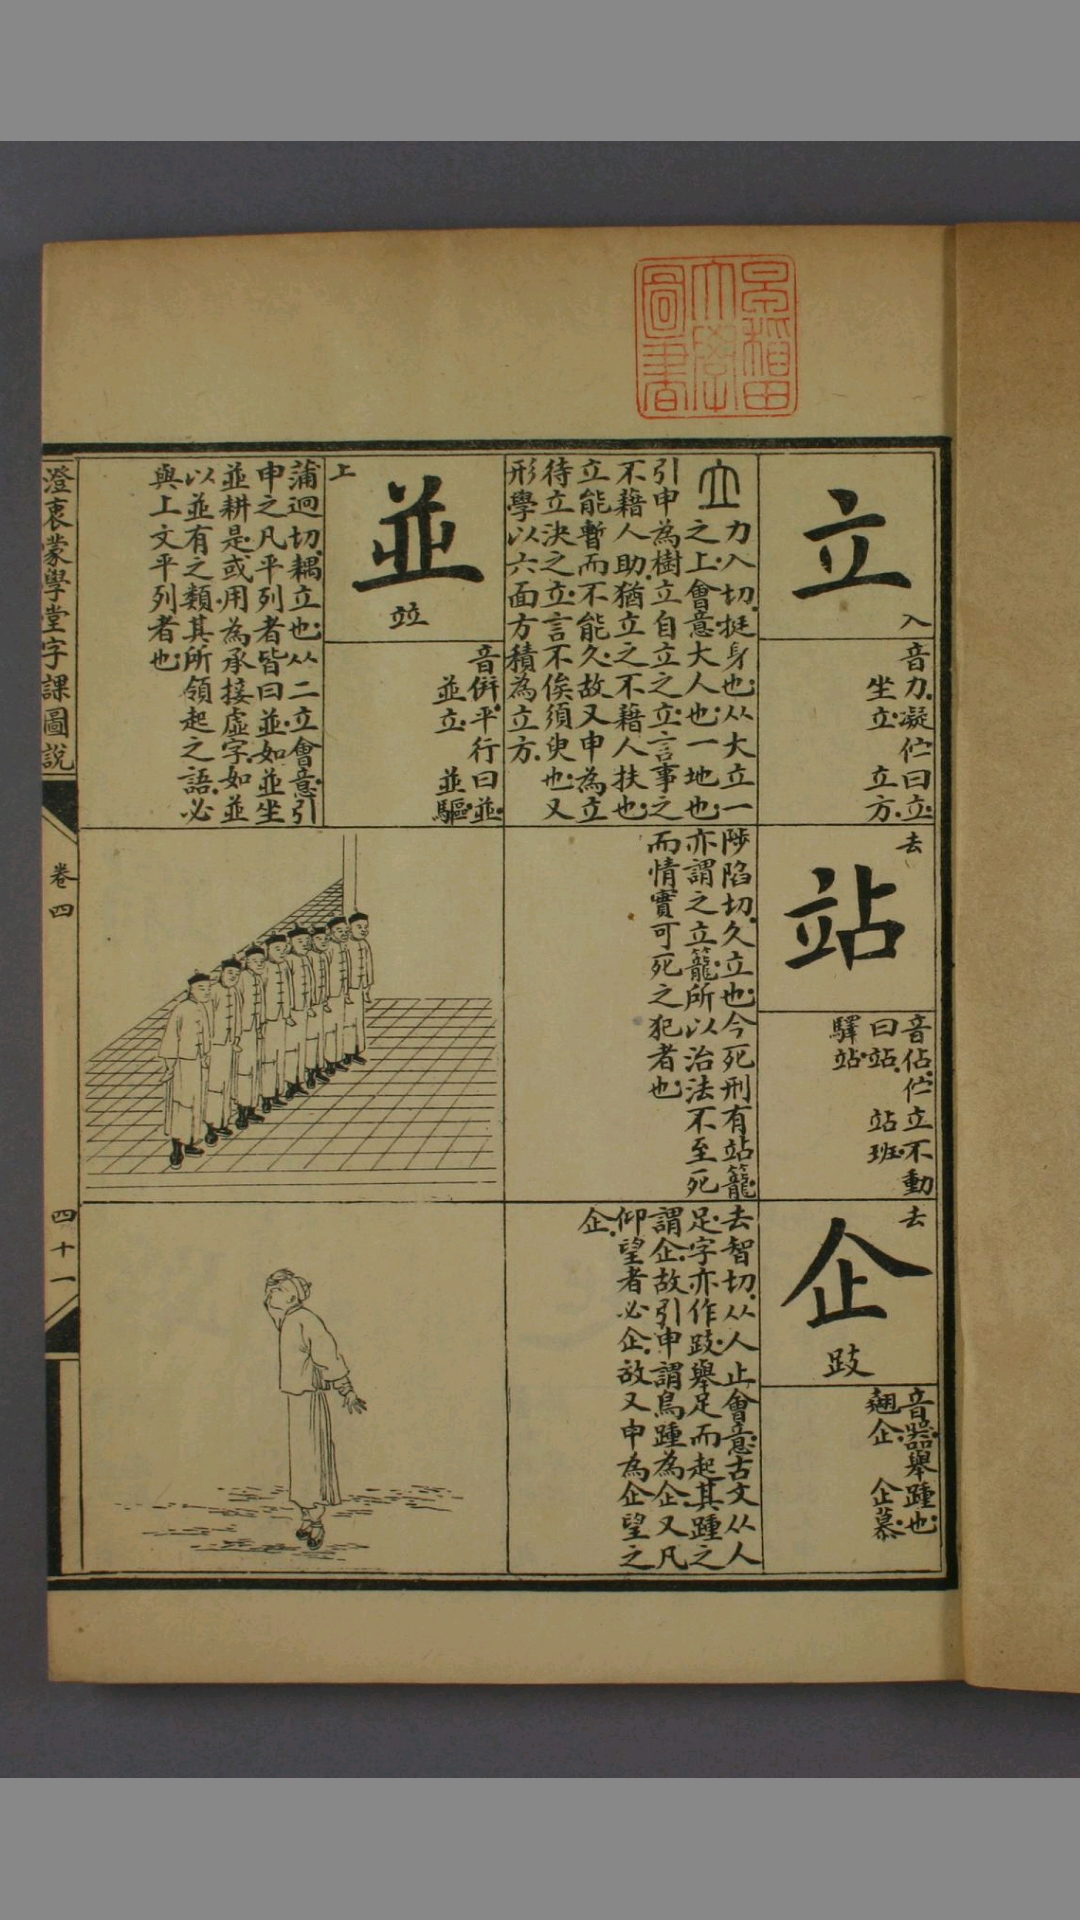 早稲田
大學
圖書
立
入
音力.凝伫曰立.
坐立 立方.
力入切.挺身也.从大立一
之上.會意.大人也.一地也.
引申為樹立自立之立.言事之
不藉人助.猶立之不藉人扶也.
立能暫而不能久.故又申為立
待立決之立.言不俟須臾也.又
形學以六面方積為立方.
並
竝
上
音併.平行曰並.
並立. 並驅.
蒲迥切.耦立也.从二立會意.引
申之.凡平列者皆曰並.如並坐
並耕是.或用為承接虛字.如並
以並有之類.其所領起之語.必
與上文平列者也.
去
站
音佔.伫立不動
曰站. 站班.
驛站.
陟陷切.久立也.今死刑有站籠.
亦謂之立籠.所以治法不至死
而情實可死之犯者也.
去
企
跂
音器.舉踵也.
翹企. 企慕.
去智切.从人止會意.古文从人
足.字亦作跂.舉足而起其踵之
謂企.故引申謂鳥踵為企.又凡
仰望者必企.故又申為企望之
企.
澄衷蒙學堂字課圖說
卷四
四十一